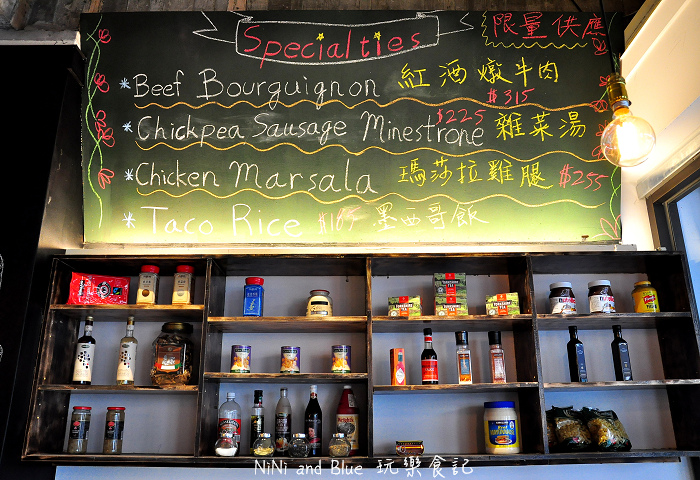 Specialties
限量供應
*Beef Bourguignon 紅酒燉牛肉
$315
*Chickpea Sausage Minestrone $225 雜菜湯
*Chicken Marsala 瑪莎拉雞腿 $255
*Taco Rice $185 墨西哥飯
NiNi and Blue 玩樂食記